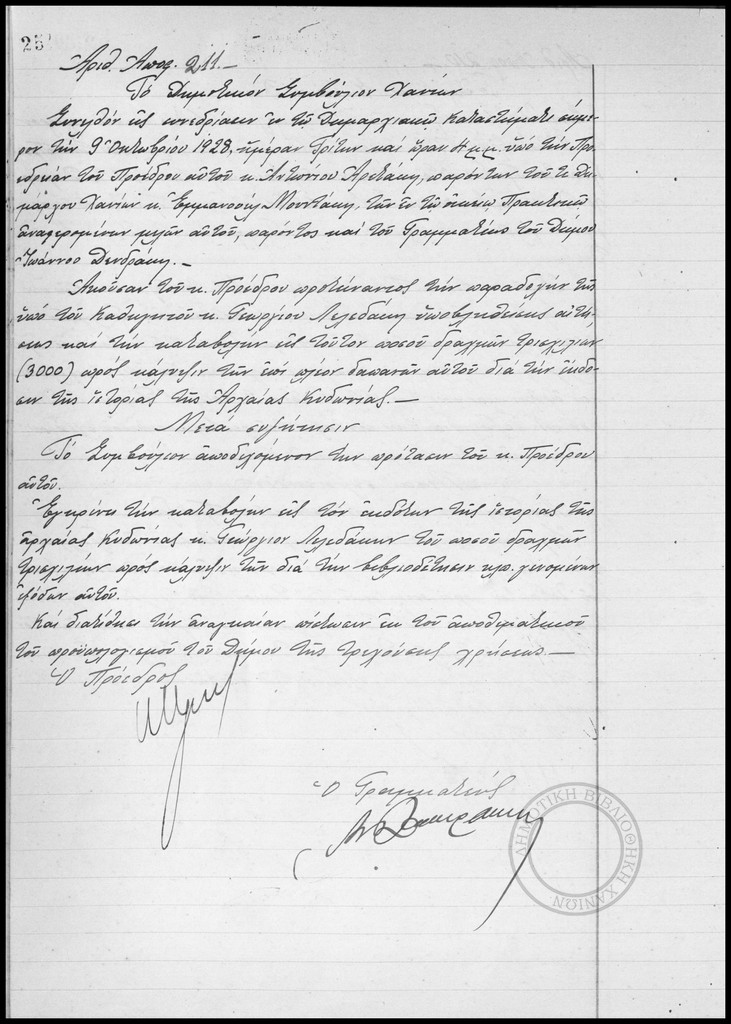 25
Ἀριθ. Ἀποφ. 211.-
Τό Δημοτικόν Συμβούλιον Χανίων
Συνελθόν εἰς συνεδρίασιν ἐν τῷ Δημαρχιακῷ Καταστήματι σήμε-
ρον τήν 9 Ὀκτωβρίου 1928, ἡμέραν Τρίτην καί ὥραν μ.μ. ὑπό τήν Προ-
εδρείαν τοῦ Προέδρου αὐτοῦ κ. Ἀντωνίου παρόντων τοῦ τε Δη-
μάρχου Χανίων κ. Ἐμμανουήλ Μουντάκη, τῶν ἐν τῷ οἰκείῳ Πρακτικῷ
ἀναφερομένων μελῶν αὐτοῦ, παρόντος καί τοῦ Γραμματέως τοῦ Δήμου
Ἰωάννου Δενδράκη.-
Ἀκοῦσαν τοῦ κ. Προέδρου προτείναντος τήν παραδοχήν τῆς
ὑπό τοῦ Καθηγητοῦ κ. Γεωργίου Λελεδάκη ὑποβληθείσης αἰτή-
σεως καί τήν καταβολήν εἰς τοῦτον ποσοῦ δραχμῶν τρισχιλίων
(3000) πρός κάλυψιν τῶν ἐπί πλέον δαπανῶν αὐτοῦ διά τήν ἔκδο-
σιν τῆς ἱστορίας τῆς Ἀρχαίας Κυδωνίας.-
Μετά συζήτησιν
Τό Συμβούλιον ἀποδεχόμενον τήν πρότασιν τοῦ κ. Προέδρου
αὐτοῦ.
Ἐγκρίνει τήν καταβολήν εἰς τόν ἐκδότην τῆς ἱστορίας τῆς
ἀρχαίας Κυδωνίας κ. Γεώργιον Λελεδάκην τοῦ ποσοῦ δραχμῶν
τρισχιλίων πρός κάλυψιν τῶν διά τήν βιβλιοδέτησιν κλπ. γενομένων
ἐξόδων αὐτοῦ.
Καί διατίθησι τήν ἀναγκαίαν πίστωσιν ἐκ τοῦ ἀποθεματικοῦ
τοῦ προϋπολογισμοῦ τοῦ Δήμου τῆς τρεχούσης χρήσεως-
Ὁ Πρόεδρος
Ὁ Γραμματεύς
ΔΗΜΟΤΙΚΗ ΒΙΒΛΙΟΘΗΚΗ ΧΑΝΙΩΝ